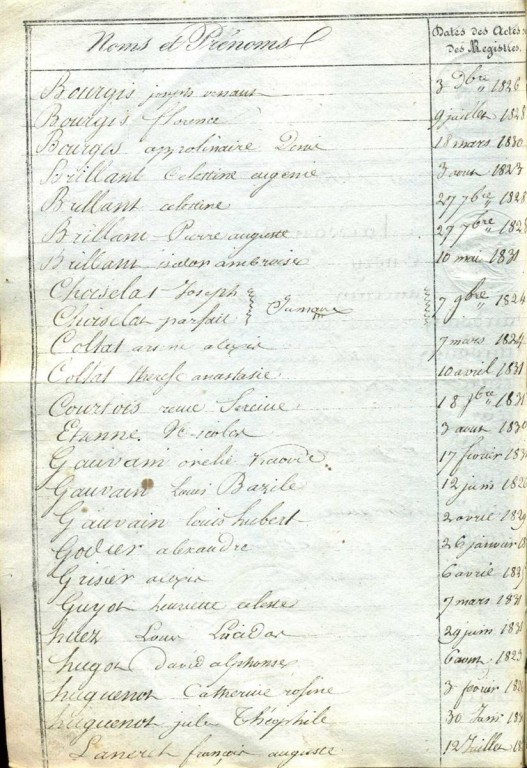 Noms et Prénoms Dates des Actes des Registres.
Bourgis joseph 3 9bre 1826
Bourgis florence 9 juillet 1828
Bourgis appolinaire 18 mars 1830
Brillant Celestine eugenie 3 aout 1823
Brillant celestine 27 7bre 1828
Brillant Pierre auguste 27 7bre 1828
Brillant isidor ambroise 10 mai 1831
Choiselat Joseph
Choiselat parfait Jumeaux 7 9bre 1824
Collat alexis 7 mars 1824
Collat therese anastasie 10 avril 1831
Courtois reine 18 1831
Etienne Nicolas 3 aout 1830
Gauvain 17 fevrier
Gauvain Louis Bazile 12 juin
Gauvain louis hubert 2 avril
Godier alexandre 26 janvier
Grisier alexis 6 avril
Guyot henriette celeste 7 mars 1831
huez Louis Lucidas 29 juin 1831
hugot david alphonse 6 aout 1823
huguenot Catherine rosine 3 fevrier
huguenot jule Théophile 30 Juin
Laneret françois auguste 12 Juillet